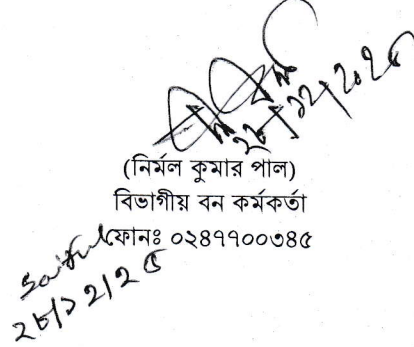 ২৮/১২/২০২৫
(নির্মল কুমার পাল)
বিভাগীয় বন কর্মকর্তা
ফোনঃ ০২৪৭৭০০৩৪৫
Saiful
২৮/১২/২৫